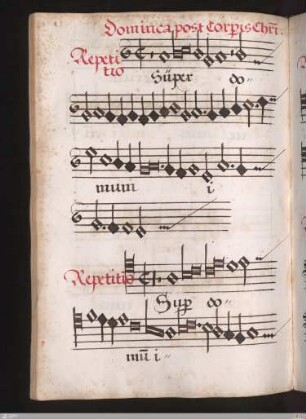 Dominica post Corpris Chri.
Repeti
tio
Super do
mum i
Repetitio
Sup do
mū i